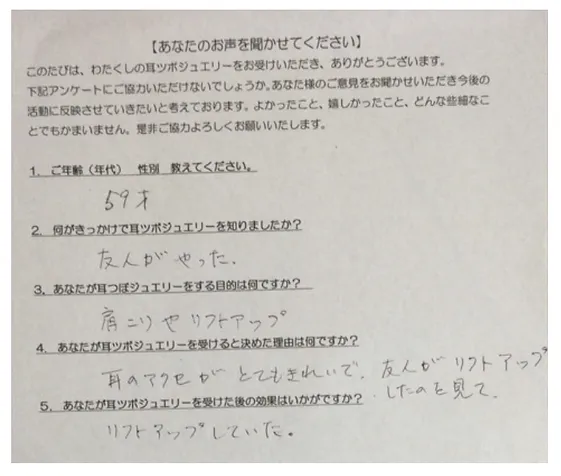 【あなたのお声を聞かせてください】
このたびは、わたくしの耳ツボジュエリーをお受けいただき、ありがとうございます。
下記アンケートにご協力いただけないでしょうか。あなた様のご意見をお聞かせいただき今後の
活動に反映させていきたいと考えております。よかったこと、嬉しかったこと、どんな些細なこ
とでもかまいません。是非ご協力よろしくお願いいたします。
1．ご年齢（年代）　性別　教えてください。
59才
2．何がきっかけで耳ツボジュエリーを知りましたか？
友人がやった.
3．あなたが耳つぼジュエリーをする目的は何ですか？
肩こりやリフトアップ
4．あなたが耳ツボジュエリーを受けると決めた理由は何ですか？
耳のアクセがとてもきれいで、友人がリフトアップ
したのを見て、
5．あなたが耳ツボジュエリーを受けた後の効果はいかがですか？
リフトアップしていた。